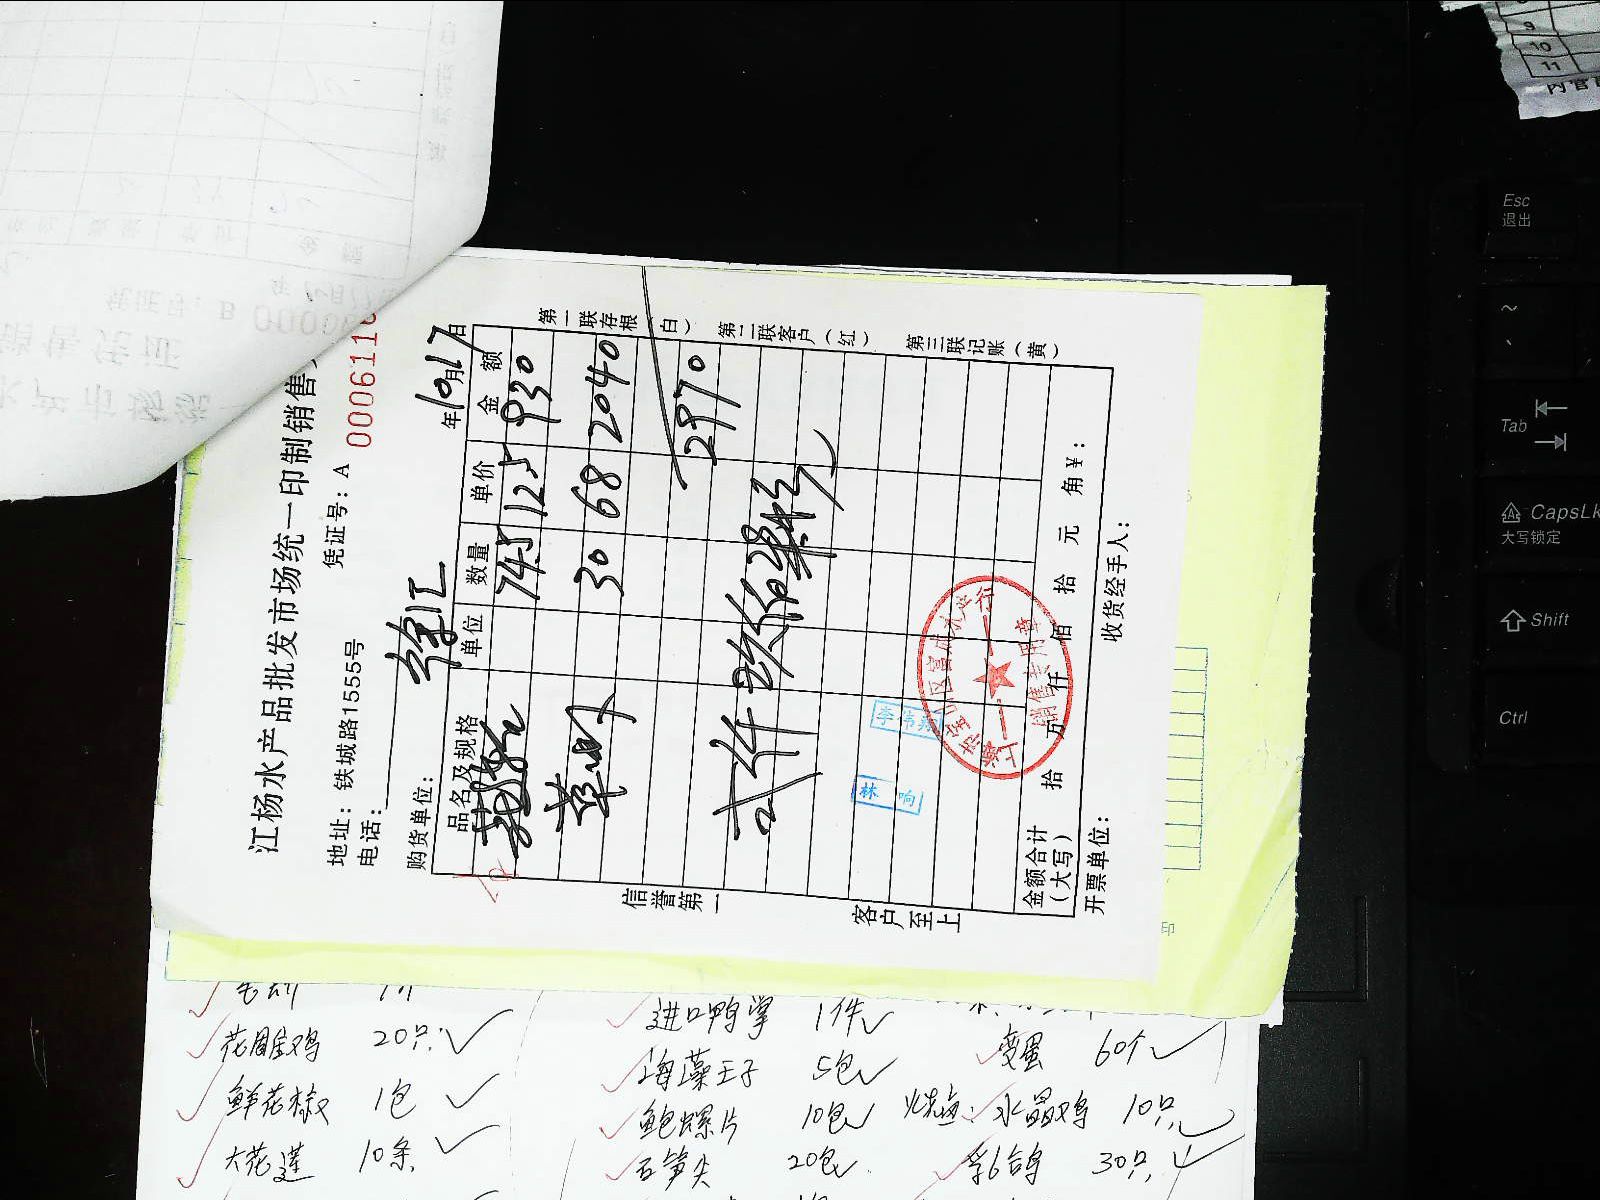 江杨水产品批发市场统一印制销售
地址：铁城路15555号
凭证号：A 0006110
电话：
购货单位：徐汇
年10月17日
品名及规格 单位 数量 单价 金额
74.5 12.5 930
草虾 30 68 2040
2970
贰仟玖佰柒拾元
金额合计（大写） 拾 万 仟 佰 拾 元 角 ¥：
开票单位：
收货经手人：
信誉第一
客户至上
第一联存根（白）
第二联客户（红）
第三联记账（黄）
销售专用章
林响
进口鸭掌 1件
变蛋 60个
20只
海藻王子 5包
鲜花椒 1包
鲍螺片 10包
水晶鸡 10只
大花莲 10条
石笋尖 20包
乳鸽 30只
9
10
11
Esc
退出
~
Tab
CapsLk
大写锁定
Shift
Ctrl